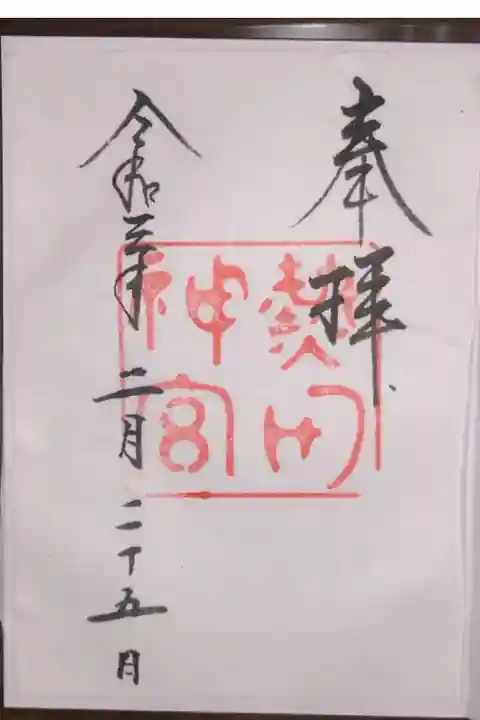 奉拝
熱田
神宮
令和三年二月二十五日